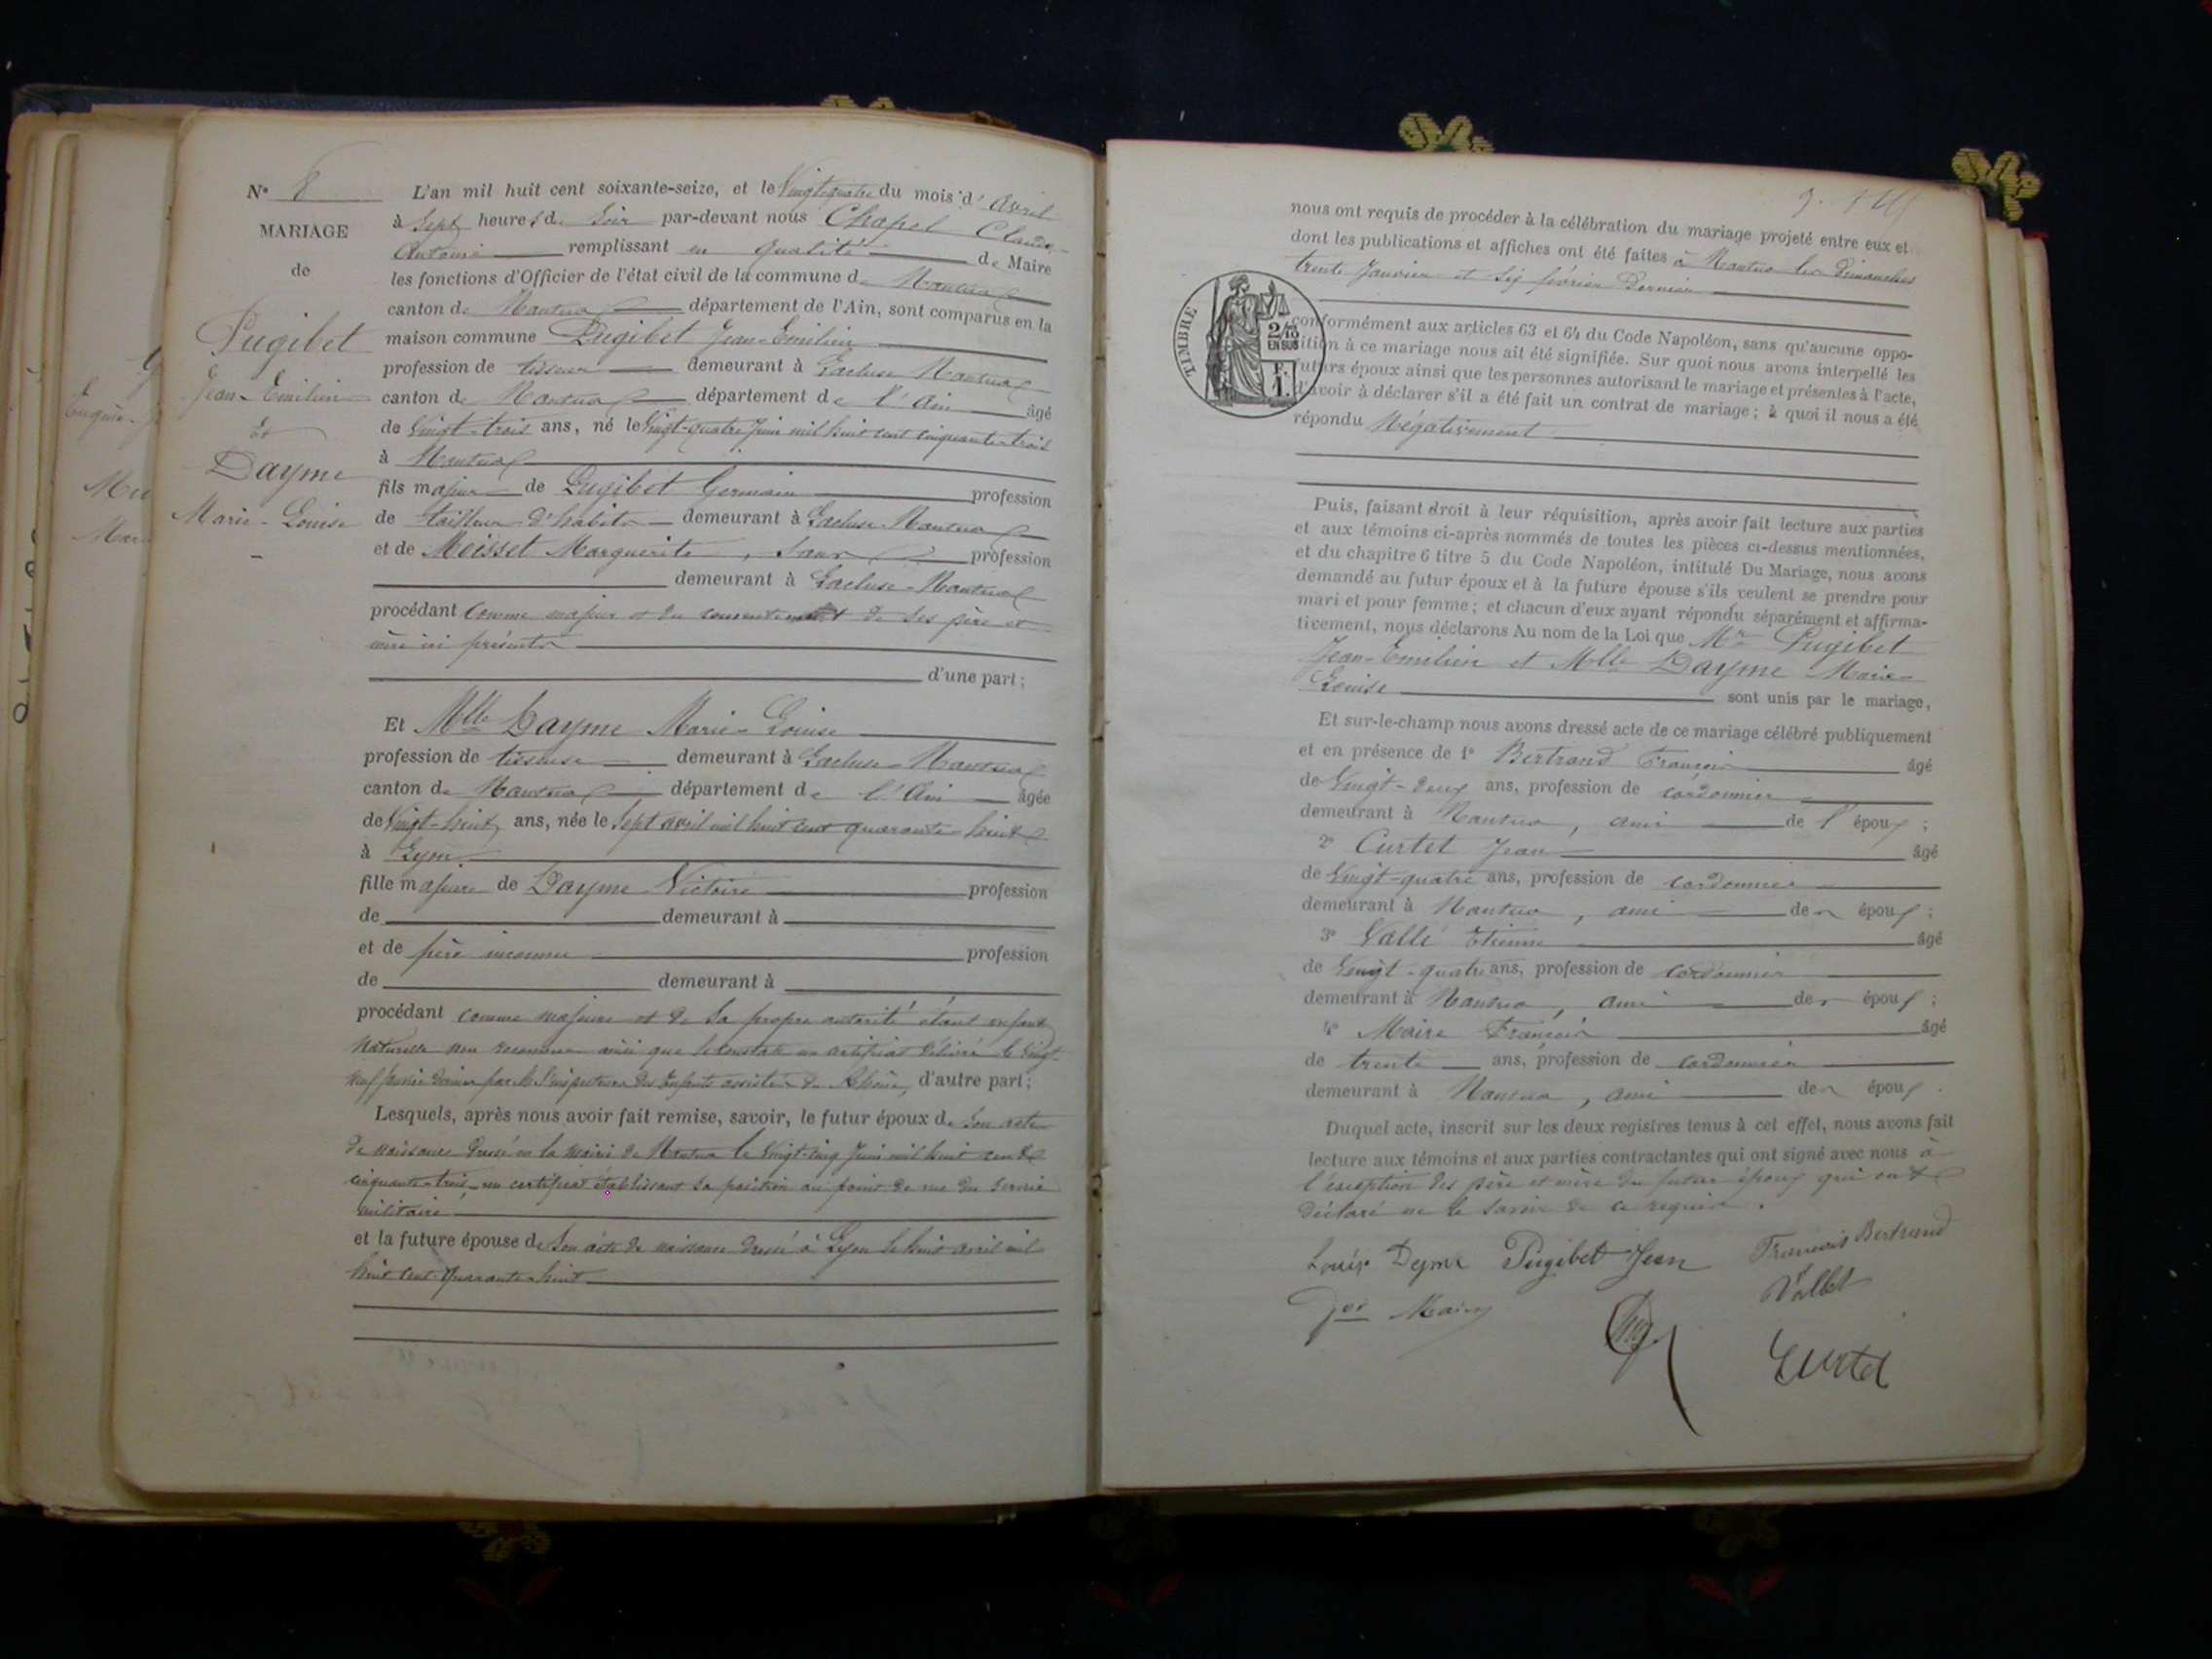 N° 8
MARIAGE
de
Pugibet
Jean-Emilien
et
Dayme
Marie-Louise
L'an mil huit cent soixante-seize, et le Vingt-quatre du mois d'Avril
à Sept heures du Soir par-devant nous Chapel Claude-
Antoine remplissant en qualité de Maire
les fonctions d'Officier de l'état civil de la commune de Nantua
canton de Nantua département de l'Ain, sont comparus en la
maison commune Pugibet Jean-Emilien
profession de tisseur demeurant à Lacluse Nantua
canton de Nantua département de l'Ain âgé
de Vingt-trois ans, né le Vingt-quatre Juin mil huit cent cinquante-trois
à Nantua
fils majeur de Pugibet Germain profession
de tailleur d'habits demeurant à Lacluse-Nantua
et de Moisset Marguerite, sans profession
demeurant à Lacluse-Nantua
procédant comme majeur et du consentement de ses père et
mère ici présents
d'une part;
Et Mlle Dayme Marie-Louise
profession de tisseuse demeurant à Lacluse-Nantua
canton de Nantua département de l'Ain âgée
de Vingt-huit ans, née le Sept avril mil huit cent quarante-huit
à Lyon
fille majeure de Dayme Victoire profession
de demeurant à
et de père inconnu profession
de demeurant à
procédant comme majeure et de sa propre autorité étant enfant
naturelle non reconnue ainsi que le constate un certificat délivré le vingt-
neuf janvier dernier par M. l'inspecteur des Enfants assistés du Rhône, d'autre part;
Lesquels, après nous avoir fait remise, savoir, le futur époux de Son acte
de naissance dressé en la mairie de Nantua le Vingt-cinq Juin mil huit cent
cinquante-trois, un certificat établissant sa position au point de vue du service
militaire
et la future épouse de Son acte de naissance dressé à Lyon le huit avril mil
huit cent quarante-huit
nous ont requis de procéder à la célébration du mariage projeté entre eux et
dont les publications et affiches ont été faites à Nantua les dimanches
trente Janvier et Six février dernier
TIMBRE
2/10
EN SUS
F.
1.
conformément aux articles 63 et 64 du Code Napoléon, sans qu'aucune oppo-
sition à ce mariage nous ait été signifiée. Sur quoi nous avons interpellé les
futurs époux ainsi que les personnes autorisant le mariage et présentes à l'acte,
d'avoir à déclarer s'il a été fait un contrat de mariage; à quoi il nous a été
répondu Négativement
Puis, faisant droit à leur réquisition, après avoir fait lecture aux parties
et aux témoins ci-après nommés de toutes les pièces ci-dessus mentionnées,
et du chapitre 6 titre 5 du Code Napoléon, intitulé Du Mariage, nous avons
demandé au futur époux et à la future épouse s'ils veulent se prendre pour
mari et pour femme; et chacun d'eux ayant répondu séparément et affirma-
tivement, nous déclarons Au nom de la Loi que Mr Pugibet
Jean-Emilien et Mlle Dayme Marie-
Louise sont unis par le mariage,
Et sur-le-champ nous avons dressé acte de ce mariage célébré publiquement
et en présence de 1° Bertrand François âgé
de Vingt-deux ans, profession de cordonnier
demeurant à Nantua, ami de l'époux;
2° Curtet Jean âgé
de Vingt-quatre ans, profession de cordonnier
demeurant à Nantua, ami de époux;
3° Vallé Etienne âgé
de Vingt-quatre ans, profession de cordonnier
demeurant à Nantua, ami de époux;
4° Maire François âgé
de trente ans, profession de cordonnier
demeurant à Nantua, ami de époux.
Duquel acte, inscrit sur les deux registres tenus à cet effet, nous avons fait
lecture aux témoins et aux parties contractantes qui ont signé avec nous à
l'exception des père et mère du futur époux qui ont
déclaré ne le savoir de ce requis.
Louise Deyme Pugibet Jean François Bertrand
Vallet
Curtet